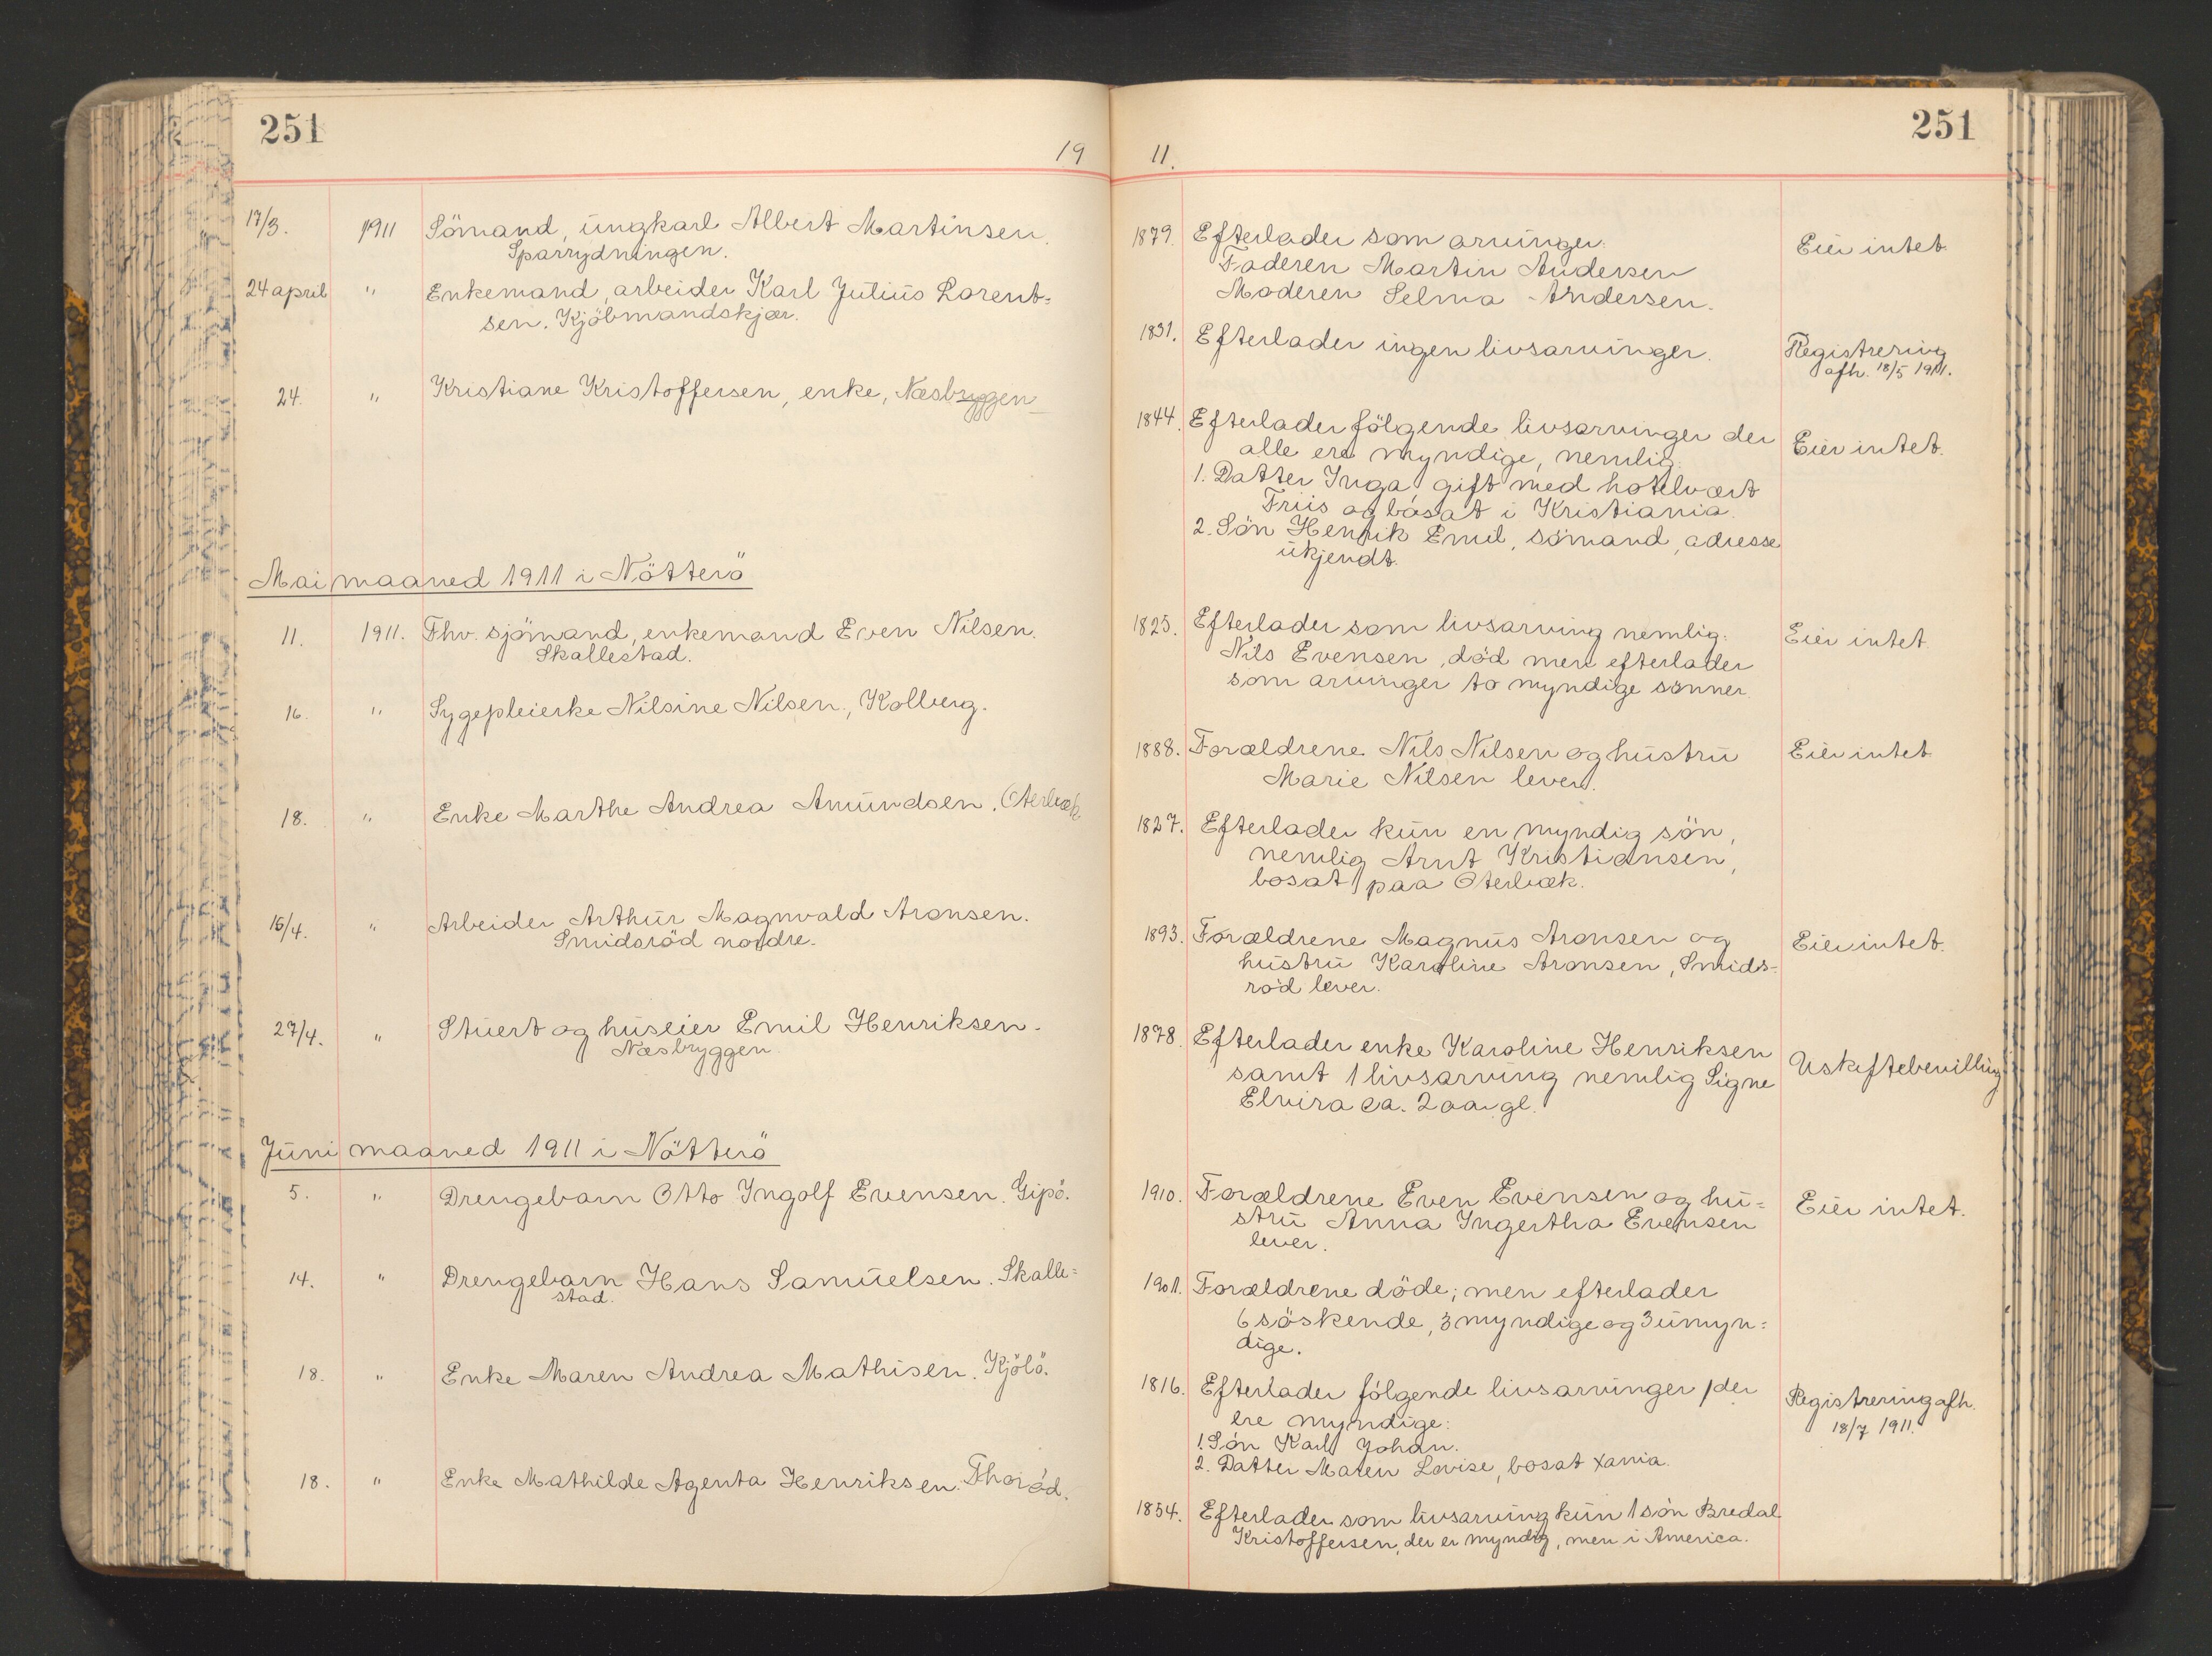 251
19
17/3. 1911 Sömand, ungkarl Albert Martinsen.
Sparrydningen.
24 april " Enkemand, arbeider Karl Julius Lorent=
sen. Kjöbmandskjær.
24. " Kristiane Kristoffersen, enke, Næsbryggen
Mai maaned 1911 i Nötterö
11. 1911. Fhv. sjömand, enkemand Even Nilsen.
Skallestad.
16. " Sygepleierske Nilsine Nilsen, Kolberg.
18. " Enke Marthe Andrea Amundsen. Oterbæk
16/4. " Arbeider Arthur Magnvald Aronsen.
Smidsröd nordre.
27/4. " Stuert og huseier Emil Henriksen.
Næsbryggen
Juni maaned 1911 i Nötterö
5. " Drengebarn Otto Ingolf Evensen. Gipö.
14. " Drengebarn Hans Samuelsen. Skalle=
stad.
18. " Enke Maren Andrea Mathisen. Kjölö.
18. " Enke Mathilde Agenta Henriksen. Thoröd.
251
11.
1879. Efterlader som arvinger:
Faderen Martin Andersen
Moderen Selma Andersen.
Eier intet
1831. Efterlader ingen livsarvinger.
Registrering
afh. 18/5 1911.
1844. Efterlader fölgende livsarvinger der
alle ere myndige, nemlig:
1. Datter Inga gift med hotelvært
Friis og bosat i Kristiania.
2. Sön Henrik Emil, sömand, adresse
ukjendt.
Eier intet.
1825. Efterlader som livsarving nemlig:
Nils Evensen, död men efterlader
som arvinger to myndige sönner.
Eier intet
1888. Forældrene Nils Nilsen og hustru
Marie Nilsen lever.
Eier intet
1827. Efterlader kun en myndig sön,
nemlig Arnt Kristiansen,
bosat paa Oterbæk.
1893. Forældrene Magnus Aronsen og
hustru Karoline Aronsen, Smids=
röd lever.
Eier intet.
1878. Efterlader enke Karoline Henriksen
samt 1 livsarving nemlig Signe
Elvira ca. 2 aar gl.
Uskiftebevilling
1910. Forældrene Even Evensen og hu=
stru Anna Ingertha Evensen
lever.
Eier intet.
1901. Forældrene döde; men efterlader
6 söskende, 3 myndige og 3 umyn=
dige.
1816. Efterlader fölgende livsarvinger, der
ere myndige:
1. Sön Karl Johan.
2. Datter Maren Lovise, bosat Xania.
Registrering afh.
18/7 1911.
1854. Efterlader som livsarving kun 1 sön Bredal
Kristoffersen, der er myndig, men i America.